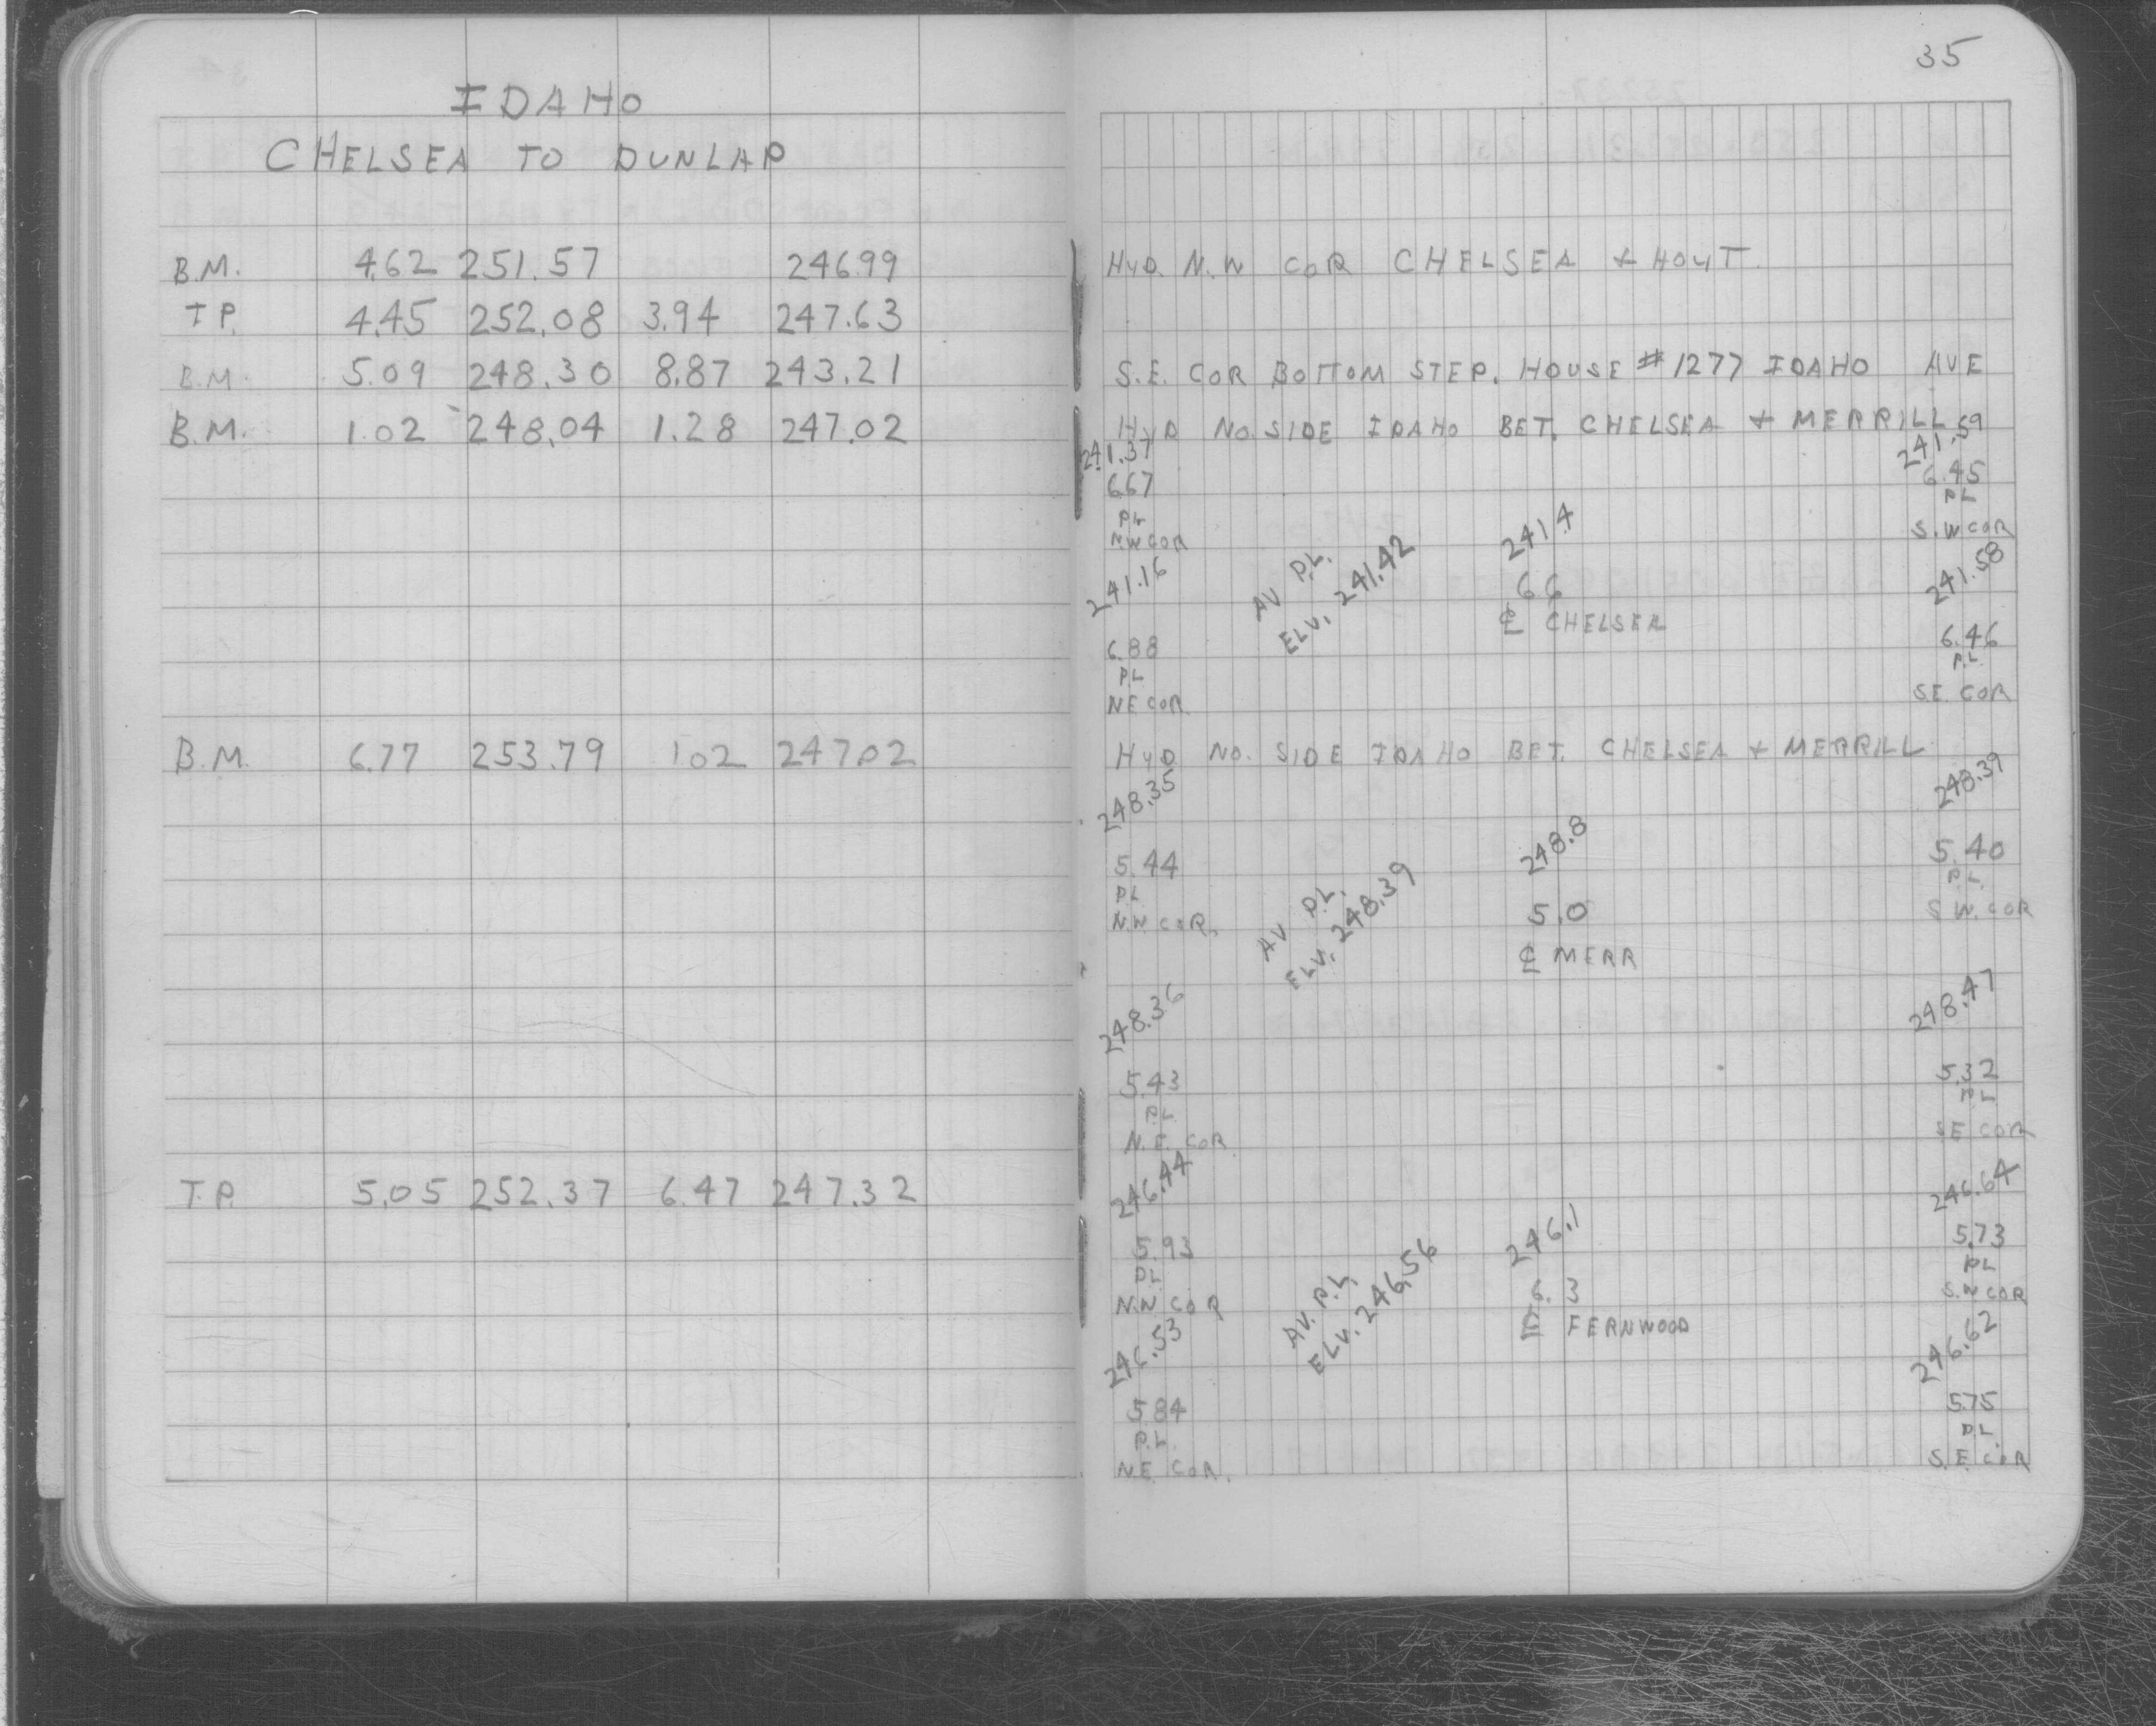 35
IDAHO
CHELSEA TO DUNLAP
B.M. 4.62 251.57 246.99
T P. 4.45 252.08 3.94 247.63
B.M. 5.09 248.30 8.87 243.21
B.M. 1.02 248.04 1.28 247.02
B.M. 6.77 253.79 1 02 247.02
T.P. 5.05 252.37 6.47 247.32
HYD. N.W COR CHELSEA + HOYT.
S.E. COR BOTTOM STEP. HOUSE #1277 IDAHO AVE
HYD NO. SIDE IDAHO BET. CHELSEA + MERRILL
241.37 241.59
6.67 6.45
PL PL
N.W COR S.W COR
241.16 AV P.L. 241.4 241.58
ELV. 241.42 6 6
℄ CHELSEA
6.88 6.46
P.L P.L.
N E COR S.E. COR
HYD NO. SIDE IDAHO BET. CHELSEA + MERRILL
248.35 248.39
5.44 248.8 5.40
P.L. P.L.
N.W. COR. AV P.L. 5.0 S.W. COR
ELV. 248.39 ℄ MERR
248.36 248.47
5.43 5.32
P.L P.L
N.E. COR S E COR
246.44 246.64
5.93 246.1 5.73
P.L P.L
N.W COR AV. P.L. 6.3 S.W COR
ELV. 246.56 ℄ FERNWOOD
246.53 246.62
5 84 5.75
P.L. P.L.
N.E. COR. S.E. COR